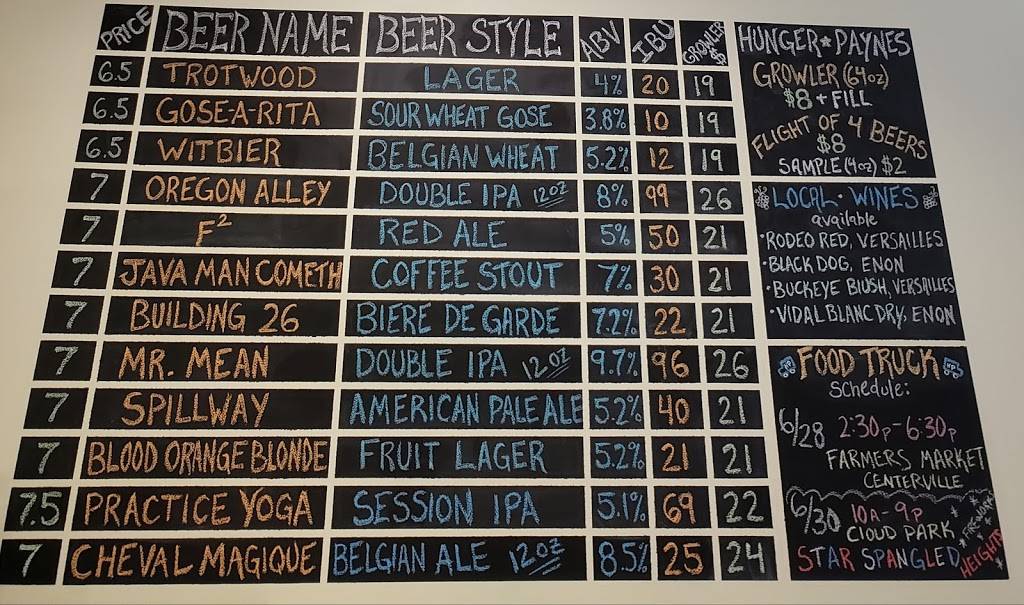 PRICE BEER NAME BEER STYLE ABV IBU GROWLER $
6.5 TROTWOOD LAGER 4% 20 19
6.5 GOSE-A-RITA SOUR WHEAT GOSE 3.8% 10 19
6.5 WITBIER BELGIAN WHEAT 5.2% 12 19
7 OREGON ALLEY DOUBLE IPA 12oz 8% 99 26
7 F² RED ALE 5% 50 21
7 JAVA MAN COMETH COFFEE STOUT 7% 30 21
7 BUILDING 26 BIERE DE GARDE 7.2% 22 21
7 MR. MEAN DOUBLE IPA 12oz 9.7% 96 26
7 SPILLWAY AMERICAN PALE ALE 5.2% 40 21
7 BLOOD ORANGE BLONDE FRUIT LAGER 5.2% 21 21
7.5 PRACTICE YOGA SESSION IPA 5.1% 69 22
7 CHEVAL MAGIQUE BELGIAN ALE 12oz 8.5% 25 24
HUNGER★PAYNES
GROWLER (64oz)
$8 + FILL
FLIGHT OF 4 BEERS
$8
SAMPLE (4oz) $2
LOCAL · WINES
available
·RODEO RED, VERSAILLES
·BLACK DOG, ENON
·BUCKEYE BLUSH, VERSAILLES
·VIDAL BLANC DRY, ENON
FOOD TRUCK
Schedule:
6/28 2:30p-6:30p
FARMERS MARKET
CENTERVILLE
6/30 10A-9p
CLOUD PARK
STAR SPANGLED
HEIGHTS